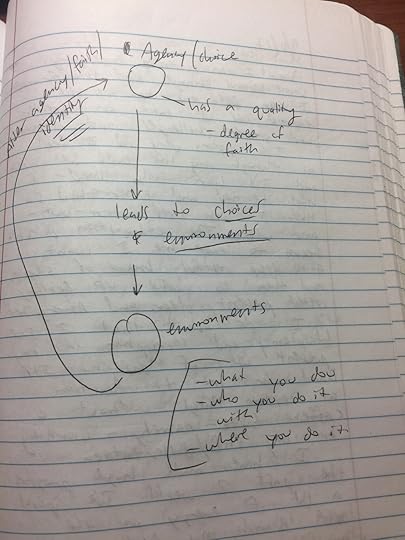 Agency/choice
has a quality
- degree of
faith
agency/faith/
identity
leads to choices
& environments
environments
- what you dou
- who you do it
with
- where you do it